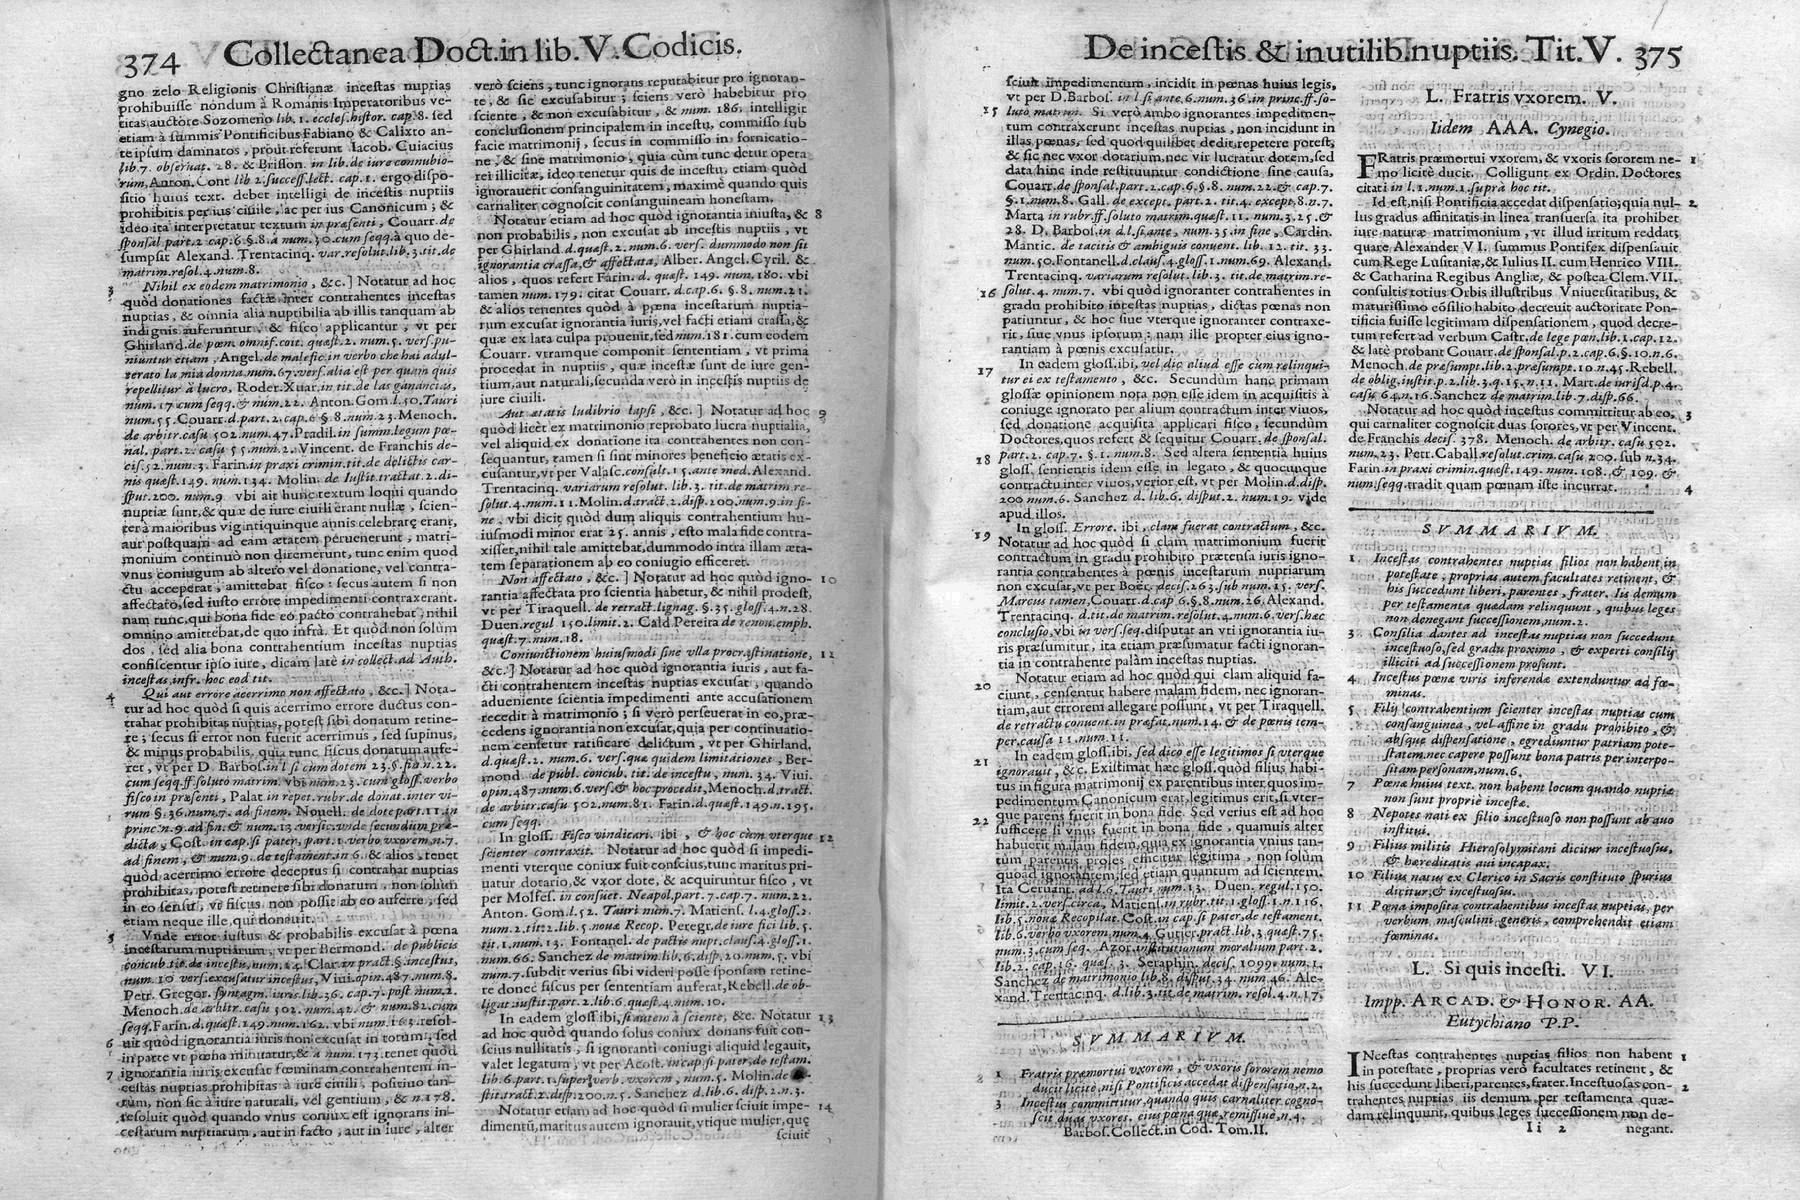 374 Collectanea Doct. in lib. V. Codicis.
gno zelo Religionis Christianæ incestas nuptias
prohibuisse nondum à Romanis Imperatoribus ve-
titas auctore Sozomeno lib. 1. eccles. histor. cap. 8. sed
etiam à summis Pontificibus Fabiano & Calixto an-
te ipsum damnatos, prout referunt Iacob. Cuiacius
lib. 7. obseruat. 28. & Brisson. in lib. de iure connubio-
rum, Anton. Cont lib 2. success. lect. cap. 1. ergo dispo-
sitio huius text. debet intelligi de incestis nuptiis
prohibitis per ius ciuile, ac per ius Canonicum; &
ideo ita interpretatur textum in præsenti, Couarr. de
sponsal part. 2 cap. 6 §. 8. à num. 30. cum seqq. à quo de-
sumpsit Alexand. Trentacinq. var. resolut. lib. 3. tit. de
matrim. resol. 4. num. 8.
3 Nihil ex eodem matrimonio, &c.] Notatur ad hoc
quòd donationes factæ inter contrahentes incestas
nuptias, & omnia alia nuptibilia ab illis tanquam ab
indignis auferuntur, & fisco applicantur, vt per
Ghirland. de pœn. omnif. coit. quæst. 2. num. 5. vers. pu-
niuntur etiam, Angel. de malefic. in verbo che hai adul-
terato la mia donna. num. 67. vers. alia est per quam quis
repellitur à lucro, Roder. Xuar. in tit. de las ganancias,
num. 17 cum seqq. & num. 22. Anton. Gom. l. 50. Tauri
num. 55. Couarr. d. part. 2. cap. 6 §. 8. num. 23. Menoch.
de arbitr. casu 502. num. 47. Pradil. in summ. legum pœ-
nal. part. 2. casu 55. num. 2. Vincent. de Franchis de-
cis. 52. num. 3. Farin. in praxi crimin. tit. de delictis car-
nis quæst. 149. num. 134. Molin. de Iustit. tractat. 2. di-
sput. 200. num. 9. vbi ait hunc textum loqui quando
nuptiæ sunt, & quæ de iure ciuili erant nullæ, scien-
ter à maioribus vigintiquinque annis celebratę erant,
aut postquam ad eam ætatem peruenerunt, matri-
monium continuò non diremerunt, tunc enim quod
vnus coniugum ab altero vel donatione, vel contra-
ctu acceperat, amittebat fisco: secus autem si non
affectato, sed iusto errore impedimenti contraxerant.
nam tunc, qui bona fide eo pacto contrahebat, nihil
omnino amittebat, de quo infrà. Et quòd non solùm
dos, sed alia bona contrahentium incestas nuptias
confiscentur ipso iure, dicam latè in collect. ad Auth.
incestas, infr. hoc eod tit.
4 Qui aut errore acerrimo non affectato, &c.] Nota-
tur ad hoc quòd si quis acerrimo errore ductus con-
trahat prohibitas nuptias, potest sibi donatum retine-
re; secus si error non fuerit acerrimus, sed supinus,
& minus probabilis, quia tunc fiscus donatum aufe-
ret, vt per D. Barbos. in l si cum dotem 23. §. si à n. 22.
cum seqq. ff. soluto matrim. vbi num. 23. cum gloss. verbo
fisco in præsenti, Palat. in repet. rubr. de donat. inter vi-
rum §. 36. num. 7. ad finem. Nouell. de dote part. 11. in
princ. n. 9. ad fin. & num. 13. versic. vnde secundum præ-
dicta, Cost. in cap. si pater, part. 1. verbo vxorem, n. 7.
ad finem, & num. 9. de testament. in 6. & alios, tenet
quòd acerrimo errore deceptus si contrahat nuptias
prohibitas, potest retinere sibi donatum, non solùm
in eo sensu, vt fiscus non possit ab eo auferre, sed
etiam neque ille, qui donauit.
5 Vnde error iustus & probabilis excusat à pœna
incestarum nuptiarum, vt per Bermond. de publicis
concub. tit. de incestu, num. 14. Clar. in pract. §. incestus,
num. 10 vers. excusatur incestus, Viui. opin. 487. num. 8.
Petr. Gregor. syntagm. iuris. lib. 36. cap. 7. post num. 2.
Menoch. de arbitr. casu 502. num. 42. & num. 82. cum
seqq. Farin. d. quæst. 149. num. 162. vbi num. 163. resol-
6 uit quòd ignorantia iuris non excusat in totum; sed
in parte vt pœna minuatur, & à num. 173. tenet quòd
7 ignorantia iuris excusat fœminam contrahentem in-
cestas nuptias prohibitas à iure ciuili, positiuo tan-
tùm, non sic à iure naturali, vel gentium, & n. 178.
resoluit quòd quando vnus coniux est ignorans in-
cestarum nuptiarum, aut in facto, aut in iure, alter
verò sciens, tunc ignorans reputabitur pro ignoran-
te, & sic excusabitur; sciens verò habebitur pro
sciente, & non excusabitur, & num. 186. intelligit
conclusionem principalem in incestu, commisso sub
facie matrimonij, secus in commisso in fornicatio-
ne, & sine matrimonio, quia cùm tunc detur opera
rei illicitæ, ideo tenetur quis de incestu, etiam quòd
ignorauerit consanguinitatem, maximè quando quis
carnaliter cognoscit consanguineam honestam.
Notatur etiam ad hoc quòd ignorantia iniusta, & 8
non probabilis, non excusat ab incestis nuptiis, vt
per Ghirland. d. quæst. 2. num. 6. vers. dummodo non sit
ignorantia crassa, & affectata, Alber. Angel. Cyril. &
alios, quos refert Farin. d. quæst. 149. num. 180. vbi
tamen num. 179. citat Couarr. d. cap. 6. §. 8. num. 21.
& alios tenentes quòd à pœna incestarum nuptia-
rum excusat ignorantia iuris, vel facti etiam crassa, &
quæ ex lata culpa prouenit, sed num. 181. cum eodem
Couarr. vtramque componit sententiam, vt prima
procedat in nuptiis, quæ incestæ sunt de iure gen-
tium, aut naturali, secunda verò in incestis nuptiis de
iure ciuili.
Aut ætatis ludibrio lapsi, &c.] Notatur ad hoc 9
quòd licèt ex matrimonio reprobato lucra nuptialia,
vel aliquid ex donatione ita contrahentes non con-
sequantur, tamen si sint minores beneficio ætatis ex-
cusantur, vt per Valasc. consult. 15. ante med. Alexand.
Trentacinq. variarum resolut. lib. 3. tit. de matrim. re-
solut. 4. num. 11. Molin. d. tract. 2. disp. 200. num. 9. in fi-
ne, vbi dicit quòd dum aliquis contrahentium hu-
iusmodi minor erat 25. annis, esto mala fide contra-
xisset, nihil tale amittebat, dummodo intra illam æta-
tem separationem ab eo coniugio efficeret.
Non affectato, &c.] Notatur ad hoc quòd igno- 10
rantia affectata pro scientia habetur, & nihil prodest,
vt per Tiraquell. de retract. lignag. §. 35. gloss. 4. n. 28.
Duen. regul 150. limit. 2. Cald Pereira de renou. emph.
quæst. 7. num. 18.
Coniunctionem huiusmodi sine vlla procrastinatione, 11
&c.] Notatur ad hoc quòd ignorantia iuris, aut fa-
cti contrahentem incestas nuptias excusat, quando
adueniente scientia impedimenti ante accusationem
recedit à matrimonio; si verò perseuerat in eo, præ-
cedens ignorantia non excusat, quia per continuatio-
nem censetur ratificare delictum, vt per Ghirland.
d. quæst. 2. num. 6. vers. quæ quidem limitationes, Ber-
mond. de publ. concub. tit. de incestu, num. 34. Viui.
opin. 487. num. 6. vers. & hoc procedit, Menoch. d. tract.
de arbitr. casu 502. num. 81. Farin. d. quæst. 149. n. 195.
cum seqq.
In gloss. Fisco vindicari. ibi, & hoc cùm vterque 12
scienter contraxit. Notatur ad hoc quòd si impedi-
menti vterque coniux fuit conscius, tunc maritus pri-
uatur dotario, & vxor dote, & acquiruntur fisco, vt
per Molfes. in consuet. Neapol. part. 7. cap. 7. num. 22.
Anton. Gom. l. 52. Tauri num. 7. Matiens. l. 4. gloss. 2.
num. 2. tit. 2. lib. 5. nouæ Recop. Peregr. de iure fisci lib. 5.
tit. 1. num. 13. Fontanel. de pactis nupt. claus. 4. gloss. 1.
num. 66. Sanchez de matrim. lib. 6. disp. 20. num. 5. vbi
num. 7. subdit verius sibi videri posse sponsam retine-
re donec fiscus per sententiam auferat, Rebell. de ob-
ligat. iustit. part. 2. lib. 6. quæst. 4. num. 10.
In eadem gloss. ibi, si autem à sciente, &c. Notatur 13
ad hoc quòd quando solus coniux donans fuit con-
scius nullitatis, si ignoranti coniugi aliquid legauit,
valet legatum, vt per Acost. in cap. si pater, de testam.
lib. 6. part. 1. super verb. vxorem, num. 5. Molin. de
stit. tract. 2. disp. 200. n. 5. Sanchez d. lib. 6. disp. 2. n. 3.
Notatur etiam ad hoc quòd si mulier sciuit impe- 14
dimentũ, maritus autem ignorauit, vtique mulier, quę
sciuit
De incestis & inutilib. nuptiis. Tit. V. 375
sciuit impedimentum, incidit in pœnas huius legis,
vt per D. Barbos. in l. si ante, 6. num. 36. in princ. ff. so-
15 luto matrim. Si verò ambo ignorantes impedimen-
tum contraxerunt incestas nuptias, non incidunt in
illas pœnas, sed quod quilibet dedit, repetere potest,
& sic nec vxor dotarium, nec vir lucratur dotem, sed
data hinc inde restituuntur condictione sine causa,
Couarr. de sponsal. part. 2. cap. 6. §. 8. num. 22. & cap. 7.
§. 1. num. 8. Gall. de except. part. 2. tit. 4. except. 8. n. 7.
Marta in rubr. ff. soluto matrim. quæst. 11. num. 3. 25. &
28. D. Barbos. in d. l. si ante, num. 35. in fine, Cardin.
Mantic. de tacitis & ambiguis conuent. lib. 12. tit. 33.
num. 50. Fontanell. d. claus. 4. gloss. 1. num. 69. Alexand.
Trentacinq. variarum resolut. lib. 3. tit. de matrim. re-
16 solut. 4. num. 7. vbi quòd ignoranter contrahentes in
gradu prohibito incestas nuptias, dictas pœnas non
patiuntur, & hoc siue vterque ignoranter contraxe-
rit, siue vnus ipsorum: nam ille propter eius igno-
rantiam à pœnis excusatur.
17 In eadem gloss. ibi, vel dic aliud esse cum relinqui-
tur ei ex testamento, &c. Secundùm hanc primam
glossæ opinionem nota non esse idem in acquisitis à
coniuge ignorato per alium contractum inter viuos,
sed donatione acquisita applicari fisco, secundùm
Doctores, quos refert & sequitur Couarr. de sponsal.
part. 2. cap. 7. §. 1. num. 8. Sed altera sententia huius
18 gloss. sentientis idem esse in legato, & quocunque
contractu inter viuos, verior est, vt per Molin. d. disp.
200 num. 6. Sanchez d. lib. 6. disput. 2. num. 19. vide
apud illos.
In gloss. Errore. ibi, clam fuerat contractum, &c.
19 Notatur ad hoc quòd si clam matrimonium fuerit
contractum in gradu prohibito prætensa iuris igno-
rantia contrahentes à pœnis incestarum nuptiarum
non excusat, vt per Boër. decis. 263. sub num. 15. vers.
Marcus tamen, Couarr. d. cap 6. §. 8. num. 26. Alexand.
Trentacinq. d. tit. de matrim. resolut. 4. num. 6. vers. hæc
conclusio, vbi in vers. seq. disputat an vti ignorantia iu-
ris præsumitur, ita etiam præsumatur facti ignoran-
tia in contrahente palàm incestas nuptias.
20 Notatur etiam ad hoc quòd qui clam aliquid fa-
ciunt, censentur habere malam fidem, nec ignoran-
tiam, aut errorem allegare possunt, vt per Tiraquell.
de retractu conuent. in præfat. num. 14. & de pœnis tem-
per. causa 11. num. 11.
21 In eadem gloss. ibi, sed dico esse legitimos si vterque
ignorauit, &c. Existimat hæc gloss. quòd filius habi-
tus in figura matrimonij ex parentibus inter quos im-
pedimentum Canonicum erat, legitimus erit, si vter-
que parens fuerit in bona fide. Sed verius est ad hoc
22 sufficere si vnus fuerit in bona fide, quamuis alter
habuerit malam fidem, quia ex ignorantia vnius tan-
tùm parentis proles efficitur legitima, non solùm
quoad ignorantem, sed etiam quantum ad scientem.
Ita Ceruant. ad l. 6. Tauri num. 13. Duen. regul. 150.
limit. 2. vers. circa, Matiens. in rubr. tit. 1. gloss. 1. n. 116.
lib. 5. nouæ Recopilat. Cost. in cap. si pater, de testament.
lib. 6. verbo vxorem num. 4. Gutier. pract. lib. 3. quæst. 75.
num. 3. cum seq. Azor. institutionum moralium part. 2.
lib. 2. cap. 16. quæst. 3. Seraphin. decis. 1099. num. 1.
Sanchez de matrimonio lib. 8. disput. 34. num. 46. Ale-
xand. Trentacinq. d. lib. 3. tit. de matrim. resol. 4. n. 17.
SVMMARIVM.
1 Fratris præmortui vxorem, & vxoris sororem nemo
ducit licitè, nisi Pontificis accedat dispensatio, n. 2.
3 Incestus committitur, quando quis carnaliter cogno-
scit duas vxores. eius pœna quæ, remissiue, n. 4.
Barbos. Collect. in Cod. Tom. II.
L. Fratris vxorem. V.
Iidem AAA. Cynegio.
FRatris præmortui vxorem, & vxoris sororem ne- 1
mo licitè ducit. Colligunt ex Ordin. Doctores
citati in l. 1. num. 1. suprà hoc tit.
Id est, nisi Pontificia accedat dispensatio; quia nul- 2
lus gradus affinitatis in linea transuersa ita prohibet
iure naturæ matrimonium, vt illud irritum reddat;
quare Alexander VI. summus Pontifex dispensauit
cum Rege Lusitaniæ, & Iulius II. cum Henrico VIII.
& Catharina Regibus Angliæ, & postea Clem. VII.
consultis totius Orbis illustribus Vniuersitatibus, &
maturissimo cõsilio habito decreuit auctoritate Pon-
tificia fuisse legitimam dispensationem, quod decre-
tum refert ad verbum Castr. de lege pœn. lib. 1. cap. 12.
& latè probant Couarr. de sponsal. p. 2. cap. 6. §. 10. n. 6.
Menoch. de præsumpt. lib. 2. præsumpt. 10 n. 45. Rebell.
de oblig. iustit. p. 2. lib. 3. q. 15. n. 11. Mart. de iurisd. p. 4.
casu 64. n. 16. Sanchez de matrim. lib. 7. disp. 66.
Notatur ad hoc quòd incestus committitur ab eo, 3
qui carnaliter cognoscit duas sorores, vt per Vincent.
de Franchis decis. 378. Menoch. de arbitr. casu 502.
num. 23. Petr. Caball. resol. crim. casu 200. sub n. 34.
Farin. in praxi crimin. quæst. 149. num. 108. & 109. &
num. seqq. tradit quam pœnam iste incurrat. 4
SVMMARIVM.
1. Incestas contrahentes nuptias filios non habent in
potestate, proprias autem facultates retinent, &
his succedunt liberi, parentes, frater. Iis demum
per testamenta quædam relinquunt, quibus leges
non denegant successionem, num. 2.
3 Consilia dantes ad incestas nuptias non succedunt
incestuoso, sed gradu proximo, & experti consilij
illiciti ad successionem prosunt.
4 Incestus pœnæ viris inferendæ extenduntur ad fœ-
minas.
5 Filij contrahentium scienter incestas nuptias cum
consanguinea, vel affine in gradu prohibito, &
absque dispensatione, egrediuntur patriam pote-
statem, nec capere possunt bona patris per interpo-
sitam personam, num. 6.
7 Pœnæ huius text. non habent locum quando nuptiæ
non sunt propriè incestæ.
8 Nepotes nati ex filio incestuoso non possunt ab auo
institui.
9 Filius militis Hierosolymitani dicitur incestuosus,
& hereditatis aui incapax.
10 Filius natus ex Clerico in Sacris constituto spurius
dicitur, & incestuosus.
11 Pœna imposita contrahentibus incestas nuptias, per
verbum masculini generis, comprehendit etiam
fœminas.
L. Si quis incesti. VI.
Impp. ARCAD. & HONOR. AA.
Eutychiano P.P.
INcestas contrahentes nuptias filios non habent 1
in potestate, proprias verò facultates retinent, &
his succedunt liberi, parentes, frater. Incestuosas con- 2
trahentes nuptias iis demum per testamenta quæ-
dam relinquunt, quibus leges successionem non de-
Ii 2 negant.